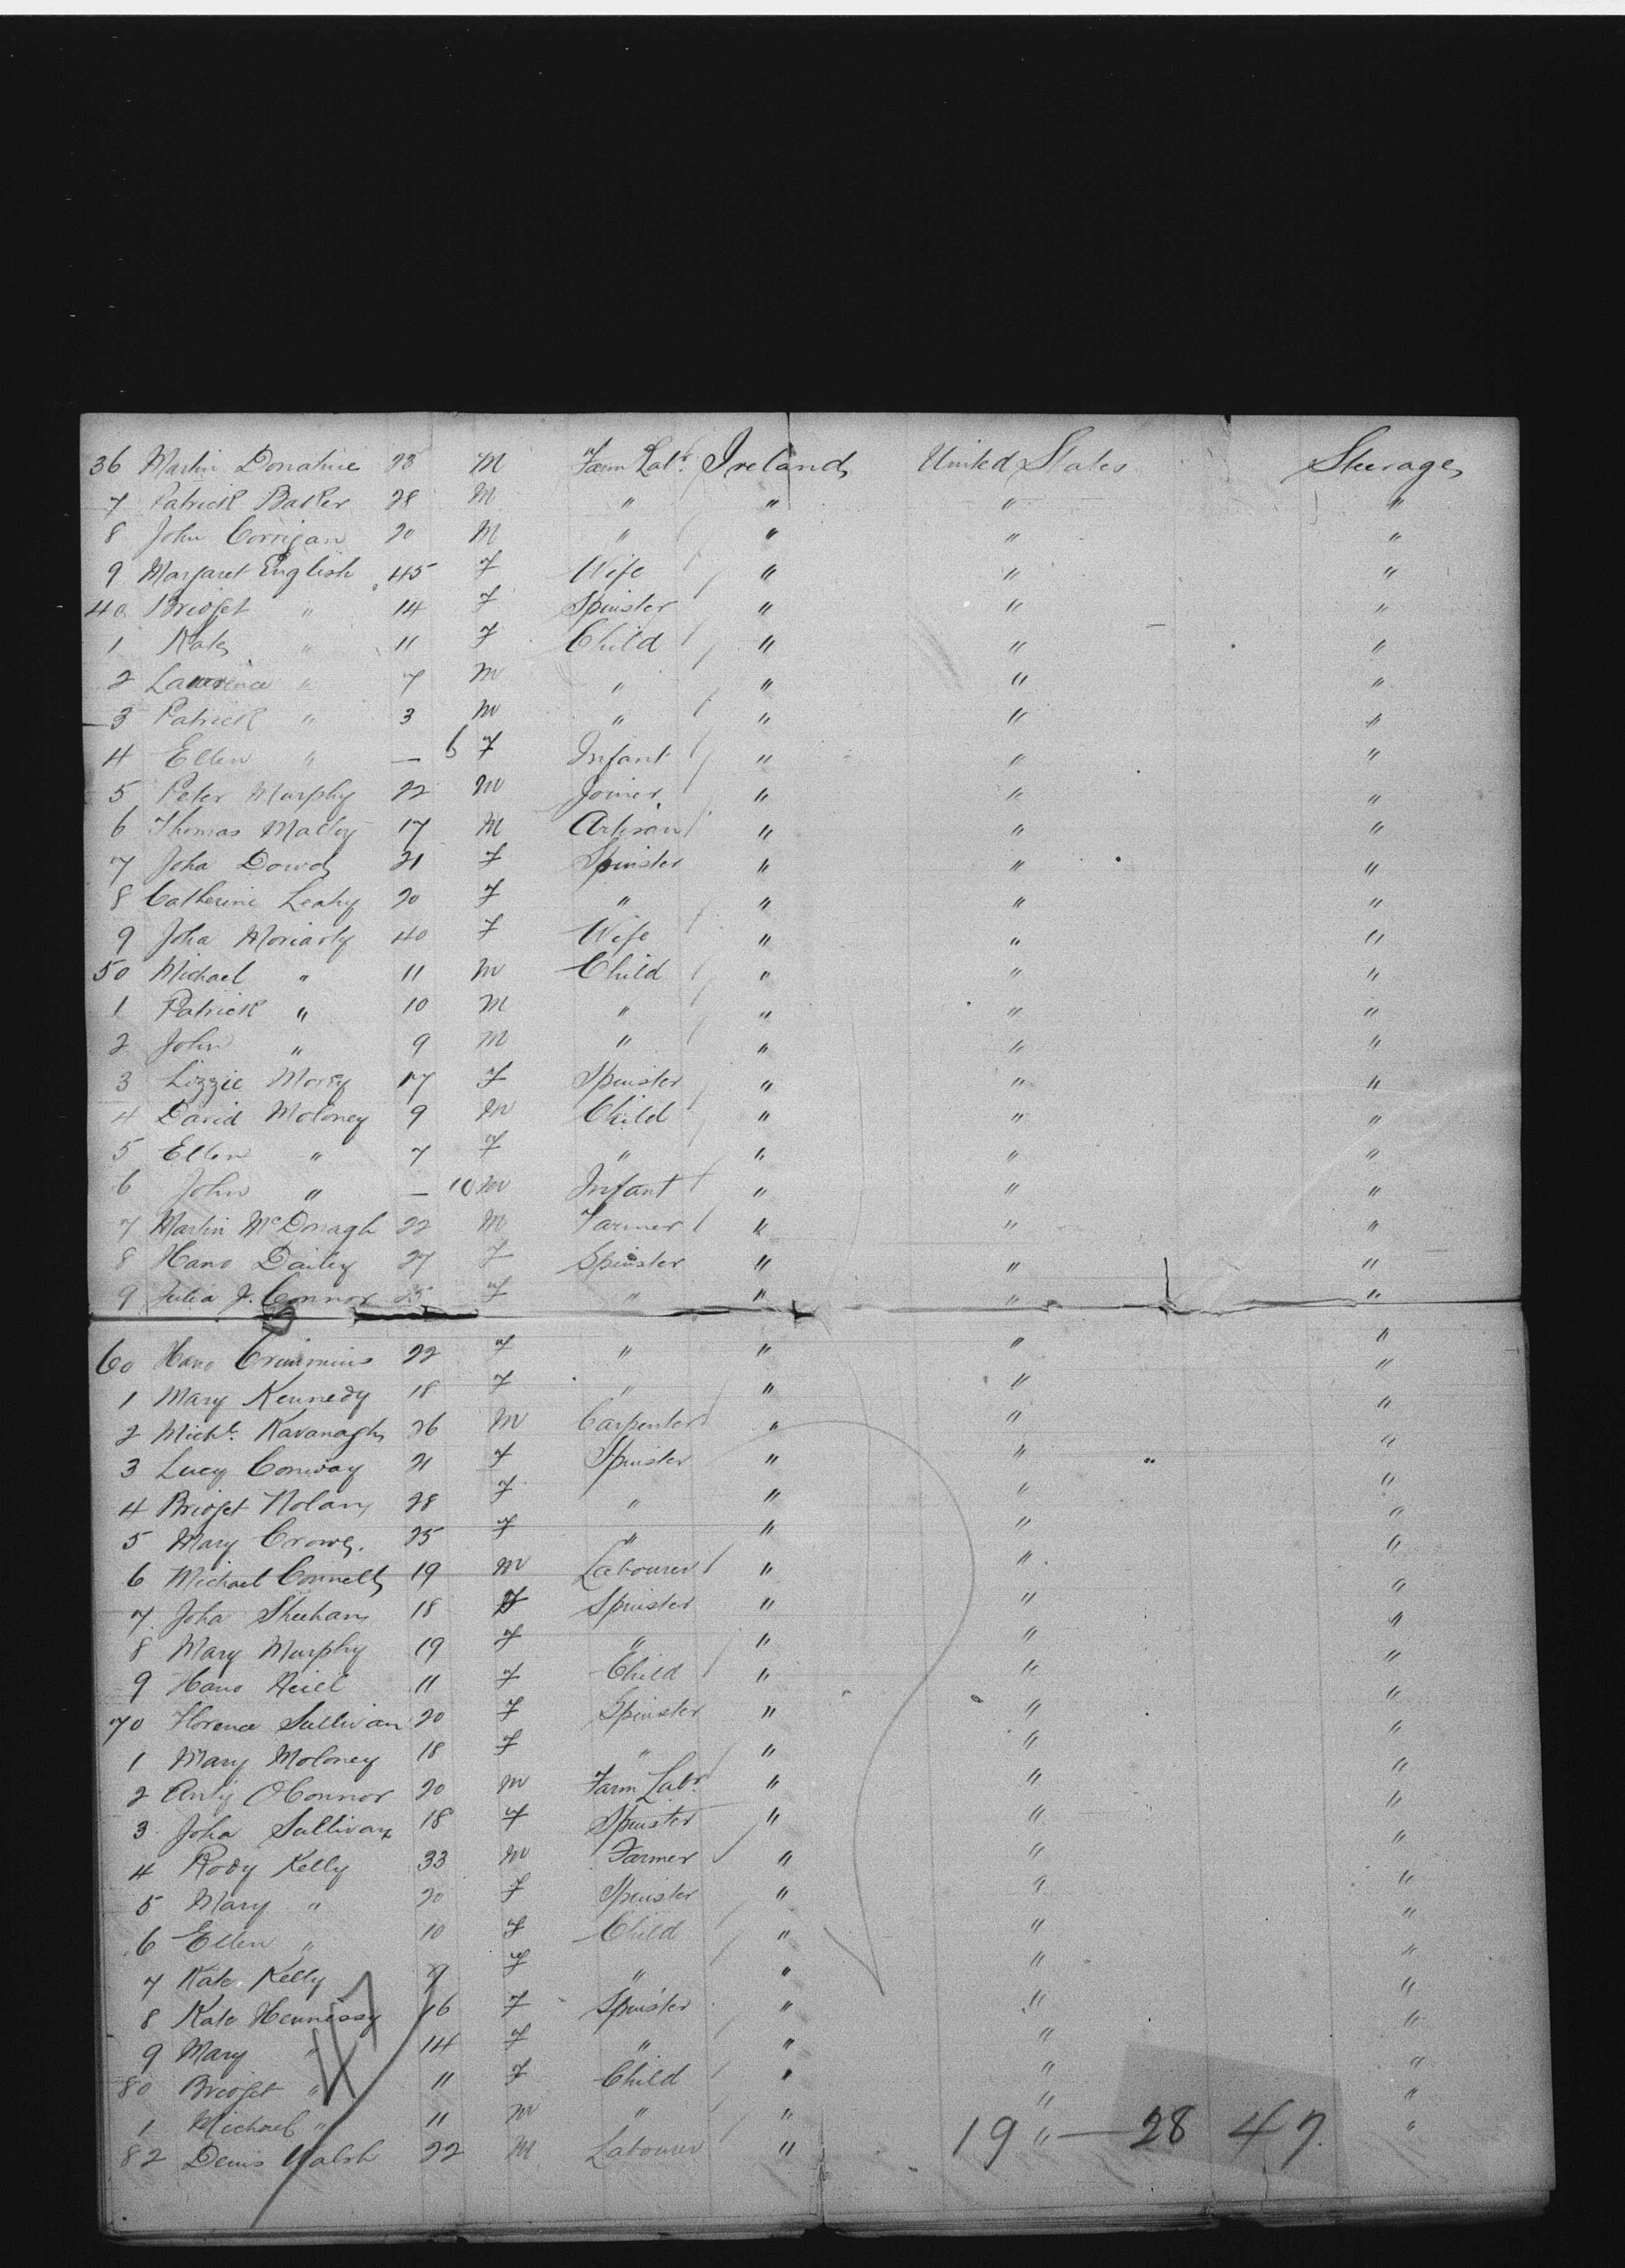 36 Martin Donahue 23 M Farm Labr. Ireland United States Steerage
7 Patrick Barker 28 M " " " "
8 John Corrigan 20 M " " " "
9 Margaret English 45 F Wife " " "
40 Bridget " 14 F Spinster " " "
1 Kate " 11 F Child " " "
2 Lawrence " 7 M " " " "
3 Patrick " 3 M " " " "
4 Ellen " — 6 F Infant " " "
5 Peter Murphy 22 M Joiner " " "
6 Thomas Malloy 17 M Artisan " " "
7 Joha Dowd 21 F Spinster " " "
8 Catherine Leahy 20 F " " " "
9 Joha Moriarty 40 F Wife " " "
50 Michael " 11 M Child " " "
1 Patrick " 10 M " " " "
2 John " 9 M " " " "
3 Lizzie 17 F Spinster " " "
4 David Moloney 9 M Child " " "
5 Ellen " 7 F " " " "
6 John " — 10 M Infant " " "
7 Martin McDonagh 22 M Farmer " " "
8 Hano Dailey 27 F Spinster " " "
9 Julia J. Connor 25 F " " " "
60 Hano Crimmins 22 F " " " "
1 Mary Kennedy 18 F " " " "
2 Michl. Kavanagh 26 M Carpenter " " "
3 Lucy Conway 21 F Spinster " " "
4 Bridget Nolan 28 F " " " "
5 Mary Crowe. 25 F " " " "
6 Michael Connell 19 M Labourer " " "
7 Joha Sheehan 18 F Spinster " " "
8 Mary Murphy 19 F " " " "
9 Hano Neill 11 F Child " " "
70 Florence Sullivan 20 F Spinster " " "
1 Mary Moloney 18 F " " " "
2 Anty OConnor 20 M Farm Labr. " " "
3 Joha Sullivan 18 F Spinster " " "
4 Rody Kelly 33 M Farmer " " "
5 Mary " 20 F Spinster " " "
6 Ellen " 10 F Child " " "
7 Kate Kelly 9 F " " " "
8 Kate Hennessy 16 F Spinster " " "
9 Mary " 14 F " " " "
80 Bridget " 11 F Child " " "
1 Michael " 11 M " " " "
82 Denis Walsh 22 M Labourer " " "
47
19 — 28 47.